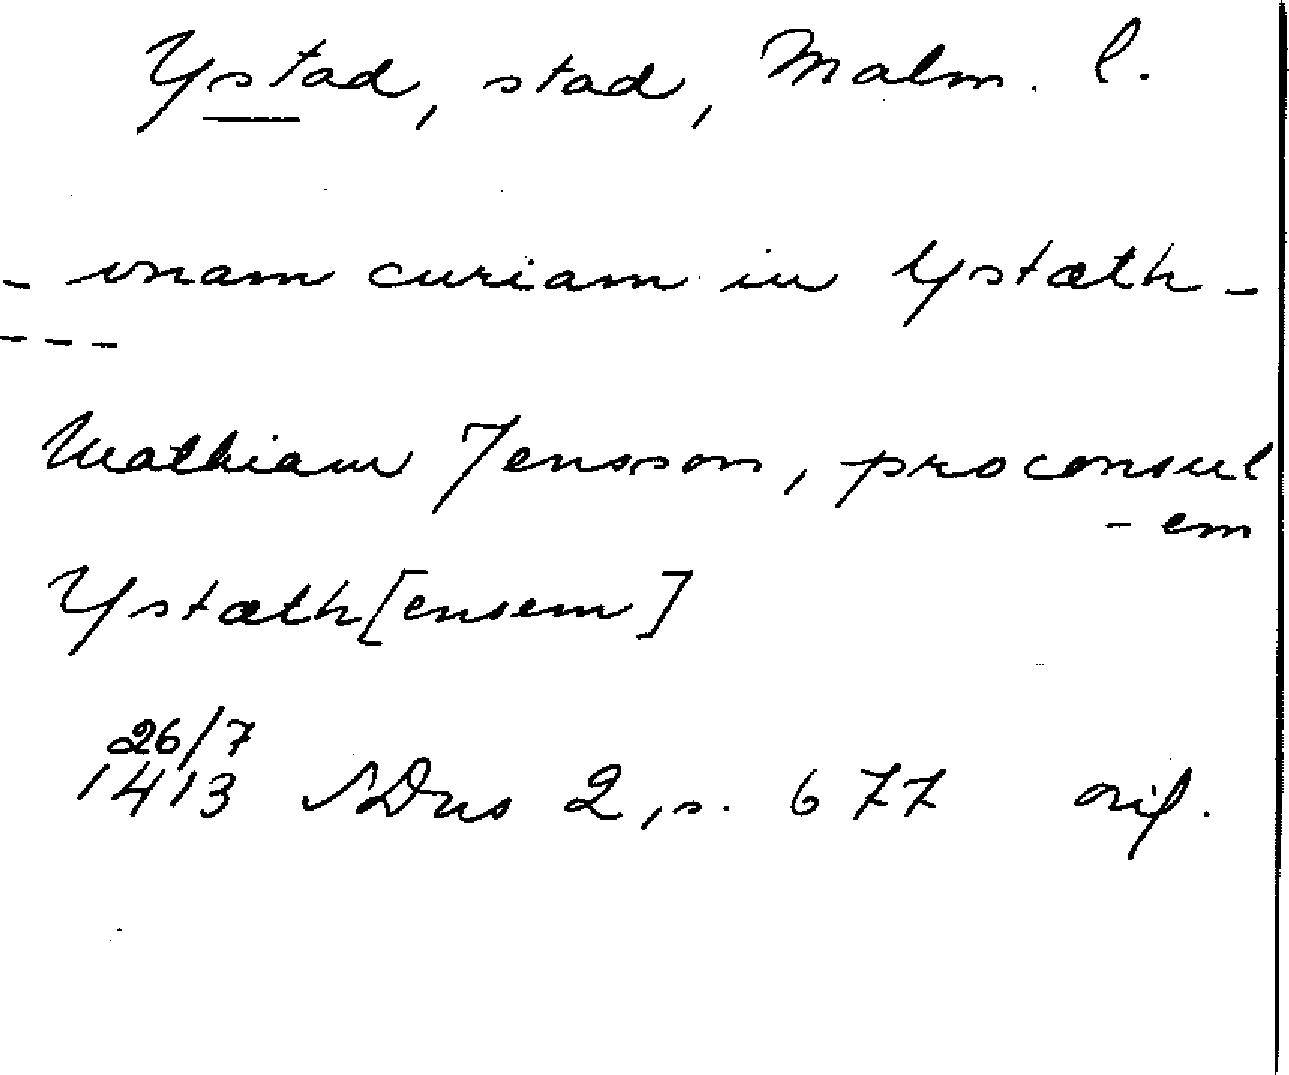 Ystad, stad, Malm. l.
- vnam curiam in Ystæth -
- - -
Mathiam Jensson, proconsul
- em
Ystæth[ensem]
26/7
1413 SDns 2, s. 677 orig.